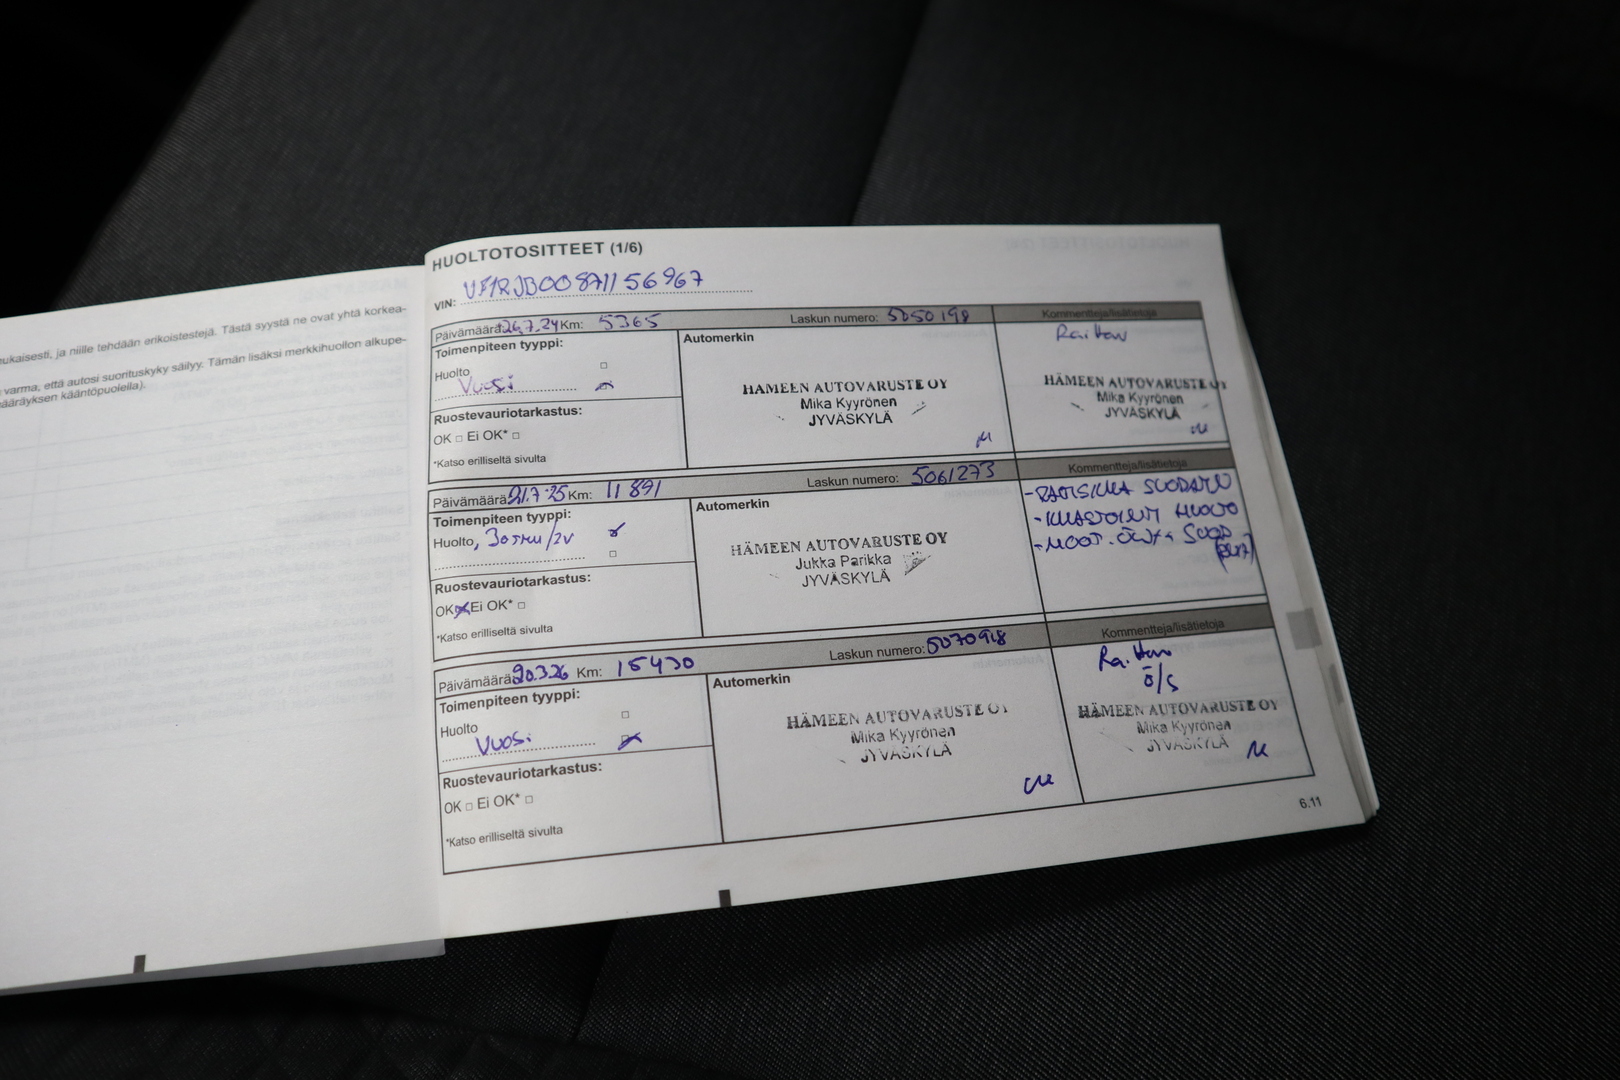 ukaisesti, ja niille tehdään erikoistestejä. Tästä syystä ne ovat yhtä korkea-
varma, että autosi suorituskyky säilyy. Tämän lisäksi merkkihuollon alkupe-
ääräyksen kääntöpuolella).
HUOLTOTOSITTEET (1/6)
VIN: VF1RJB00871156967
Päivämäärä 26.7.24 Km: 5365 Laskun numero: 5050198 Kommentteja/lisätietoja
Toimenpiteen tyyppi:
Huolto
Vuosi
Ruostevauriotarkastus:
OK □ Ei OK* □
*Katso erilliseltä sivulta
Automerkin
HÄMEEN AUTOVARUSTE OY
Mika Kyyrönen
JYVÄSKYLÄ
HÄMEEN AUTOVARUSTE OY
Mika Kyyrönen
JYVÄSKYLÄ
Päivämäärä 21.7.25 Km: 11 891 Laskun numero: 5061273 Kommentteja/lisätietoja
Toimenpiteen tyyppi:
Huolto, 30TKM/2V
Ruostevauriotarkastus:
OK Ei OK* □
*Katso erilliseltä sivulta
Automerkin
HÄMEEN AUTOVARUSTE OY
Jukka Parikka
JYVÄSKYLÄ
- RAITISILMA SUODATIN
- ILMASTOINTI HUOLTO
- MOOT. ÖLJY + SUOD
Päivämäärä 20.3.26 Km: 15430 Laskun numero: 5070918 Kommentteja/lisätietoja
Toimenpiteen tyyppi:
Huolto
Vuosi
Ruostevauriotarkastus:
OK □ Ei OK* □
*Katso erilliseltä sivulta
Automerkin
HÄMEEN AUTOVARUSTE OY
Mika Kyyrönen
JYVÄSKYLÄ
Ö/S
HÄMEEN AUTOVARUSTE OY
Mika Kyyrönen
JYVÄSKYLÄ
6.11